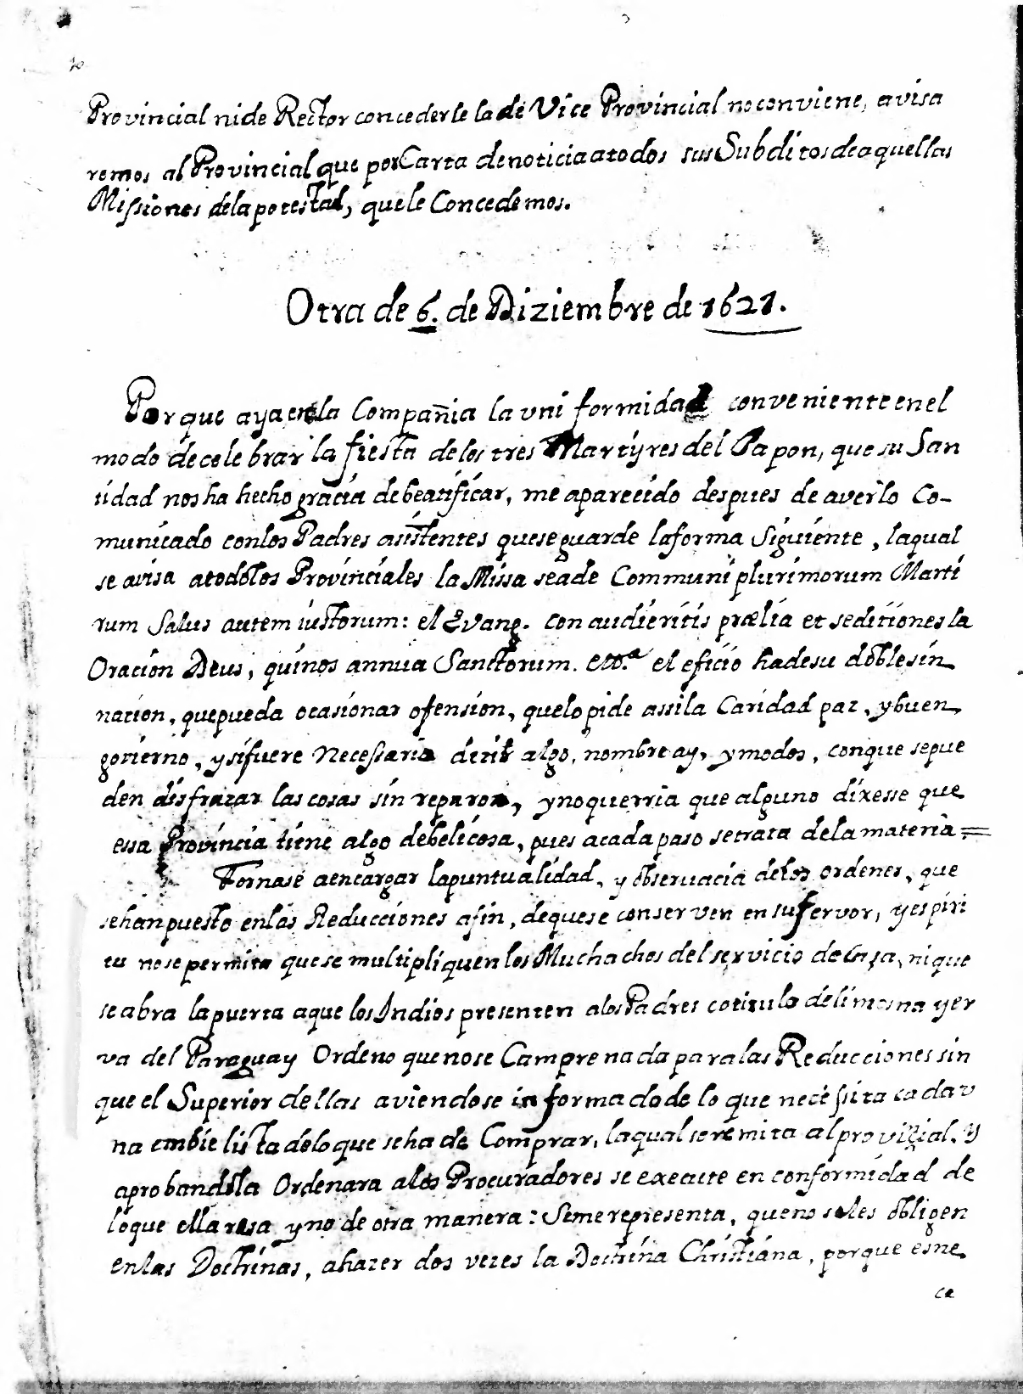 Provincial ni de Rector concederle la de Vice Provincial no conviene, avisa
remos al Provincial que por Carta de noticia a todos sus Subditos de aquellas
Missiones de la potestad, que le Concedemos.
Otra de 6. de Diziembre de 1621.
Porque aya en la Compañia la uniformidad conveniente en el
modo de celebrar la fiesta de los tres Martyres del Japon, que su San
tidad nos ha hecho gracia de beatificar, me aparecido despues de averlo Co-
municado con los Padres asistentes que se guarde la forma Siguiente, la qual
se avisa a todos los Provinciales la Missa sea de Communi plurimorum Marti
rum Salus autem iustorum: el Evang. con audieritis prælia et seditiones la
Oracion Deus, qui nos annua Sanctorum. etta el oficio ha de su doble sin
nacion, que pueda ocasionar ofension, que lo pide assi la Caridad paz, y buen
govierno, y si fuere Necessario dezir algo, nombre ay, y modos, con que se pue
den disfrazar las cosas sin reparon, y no querria que alguno dixesse que
essa Provincia tiene algo de belicosa, pues a cada paso se trata de la materia =
Tornase a encargar la puntualidad, y observacia de los ordenes, que
se han puesto en las Reducciones afin, de que se conserven en su fervor, y espiri
tu no se permita que se multipliquen los Muchachos del servicio de Casa, ni que
se abra la puerta a que los Indios presenten a los Padres co titulo de limosna yer
va del Paraguay Ordeno que no se Compre nada para las Reducciones sin
que el Superior de llas aviendose informado de lo que necessita cada v
na embie lista de lo que se ha de Comprar, la qual se remita al provizial. Y
aprobandola Ordenara a los Procuradores se execute en conformidad de
lo que ella reza y no de otra manera: Seme representa, que no se les obligen
en las Doctrinas, a hazer dos vezes la Doctrina Christiana, porque es ne
ce